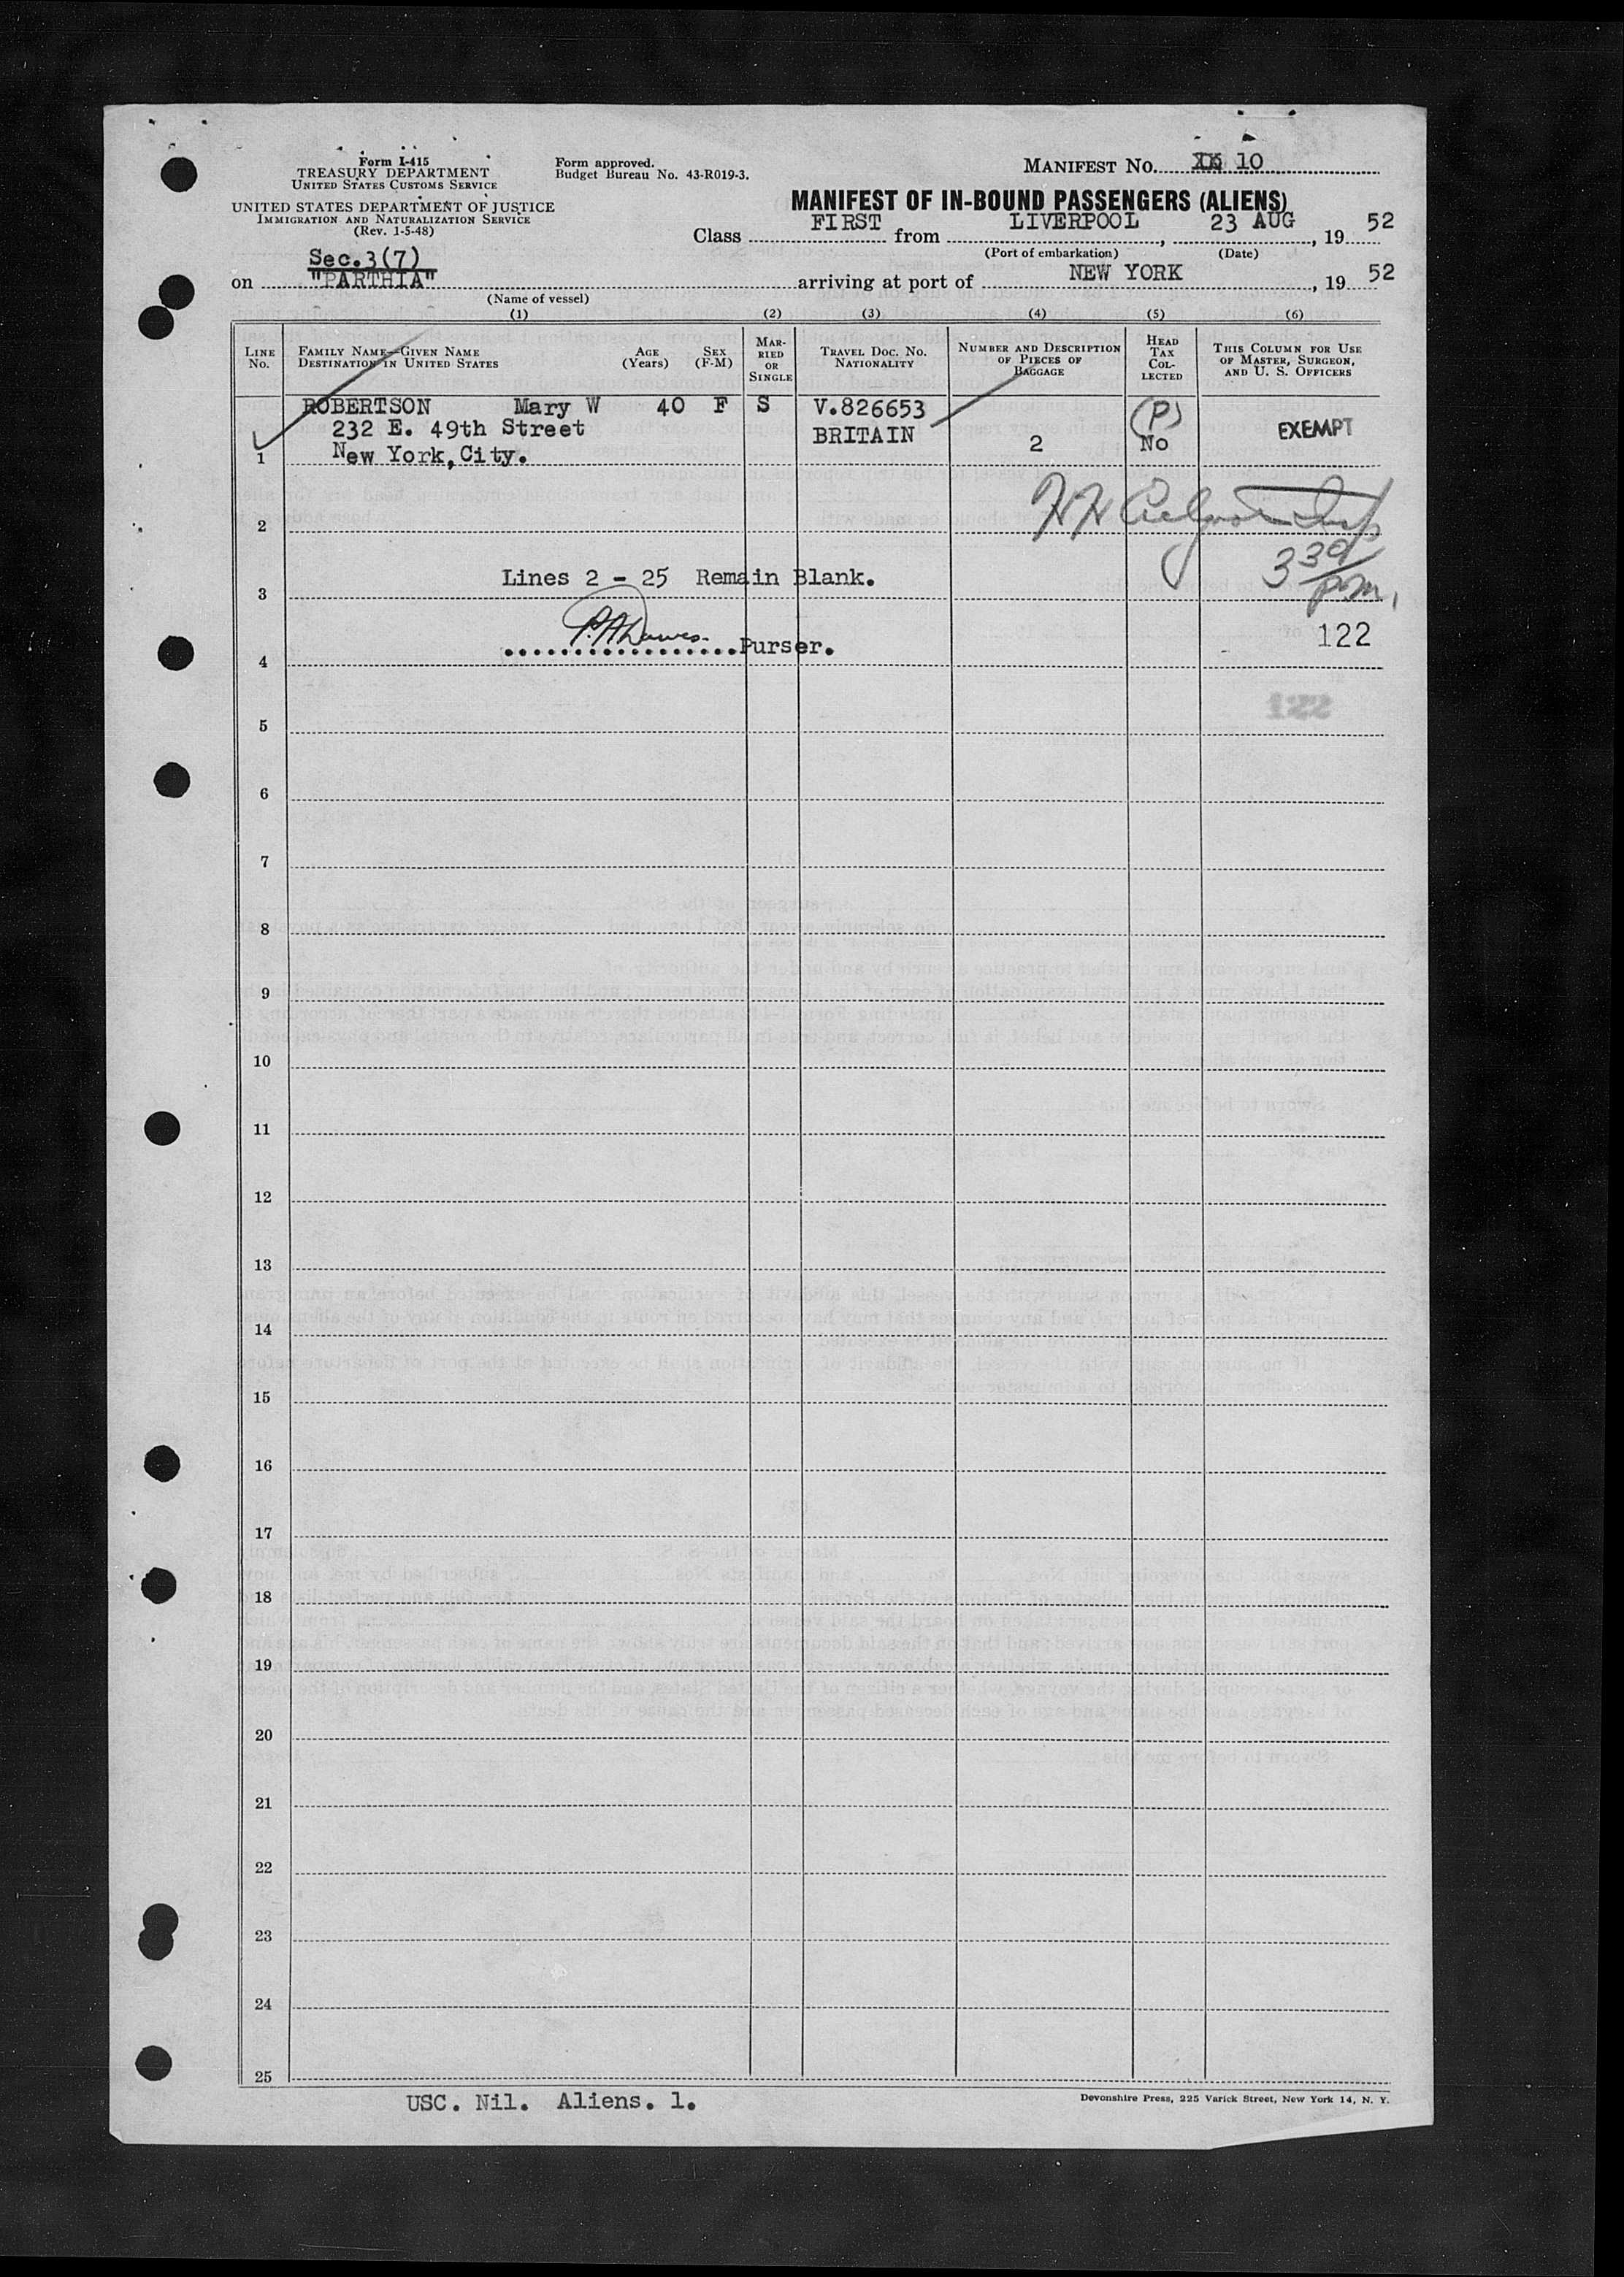 Form I-415
TREASURY DEPARTMENT
UNITED STATES CUSTOMS SERVICE
UNITED STATES DEPARTMENT OF JUSTICE
IMMIGRATION AND NATURALIZATION SERVICE
(Rev. 1-5-48)
Form approved.
Budget Bureau No. 43-R019-3.
MANIFEST No. 10
MANIFEST OF IN-BOUND PASSENGERS (ALIENS)
Class FIRST from LIVERPOOL, 23 AUG, 19 52
(Port of embarkation) (Date)
Sec.3(7)
on "PARTHIA" arriving at port of NEW YORK, 19 52
(Name of vessel)
(1) (2) (3) (4) (5) (6)
LINE No.
FAMILY NAME—GIVEN NAME
DESTINATION IN UNITED STATES
AGE (Years)
SEX (F-M)
MARRIED OR SINGLE
TRAVEL DOC. No. NATIONALITY
NUMBER AND DESCRIPTION OF PIECES OF BAGGAGE
HEAD TAX COLLECTED
THIS COLUMN FOR USE OF MASTER, SURGEON, AND U. S. OFFICERS
ROBERTSON Mary W 40 F S V.826653 (P)
232 E. 49th Street BRITAIN 2 No EXEMPT
1 New York, City.
2
Lines 2 - 25 Remain Blank.
3 3 30/pm.
.................Purser. 122
4
122
5
6
7
8
9
10
11
12
13
14
15
16
17
18
19
20
21
22
23
24
25
USC. Nil. Aliens. 1.
Devonshire Press, 225 Varick Street, New York 14, N. Y.